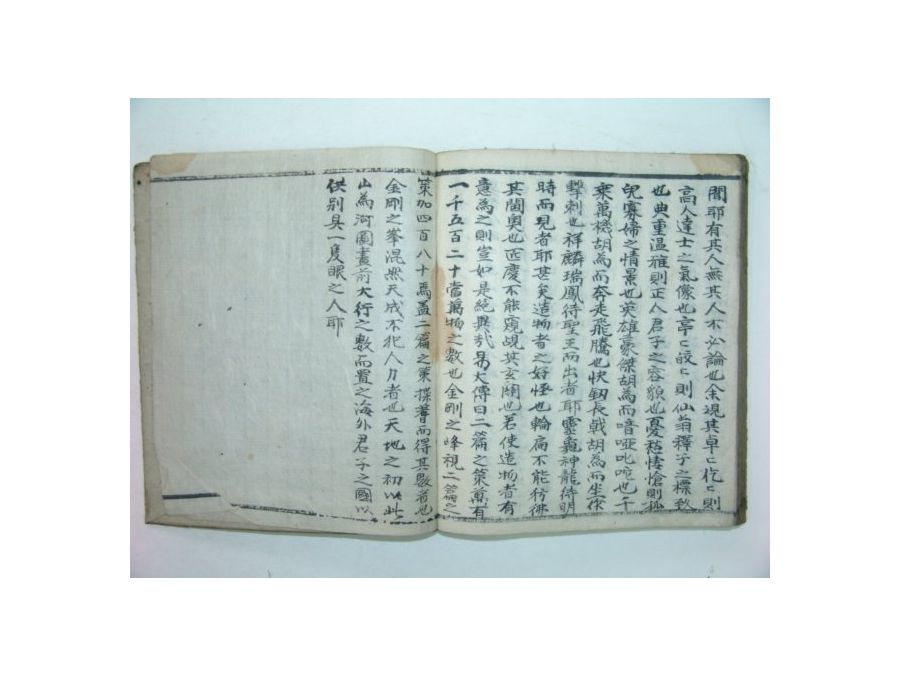 闇耶有其人無其人不必論也余現其卓〻屹〻則
高人達士之氣像也亭〻皎〻則仙翁釋子之標致
也典重溫雅則正人君子之容貌也憂愁悽愴則孤
兒寡婦之情景也英雄豪傑胡為而喑啞叱咤也千
乘萬機胡為而奔走飛騰也快釰長戟胡為而坐作
擊刺也祥麟瑞鳳待聖王而出者耶靈龜神龍待明
時而見者耶甚矣造物者之好怪也輪扁不能彷彿
其閫奧也匠慶不能窺覘其玄關也若使造物者有
意為之則豈如是絕異哉易大傳曰二篇之策萬有
一千五百二十當萬物之數也金剛之峰視二篇之
策加四百八十焉盖二篇之策揲蓍而得其數者也
金剛之峯混然天成不犯人力者也天地之初以此
山為河圖畫前大行之數而置之海外君子之國以
俟別具一隻眼之人耶